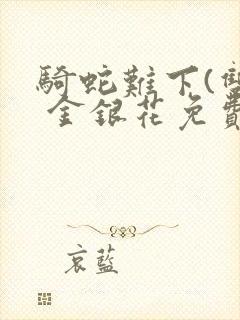 騎蛇難下(雙
金銀花免費
哀藍